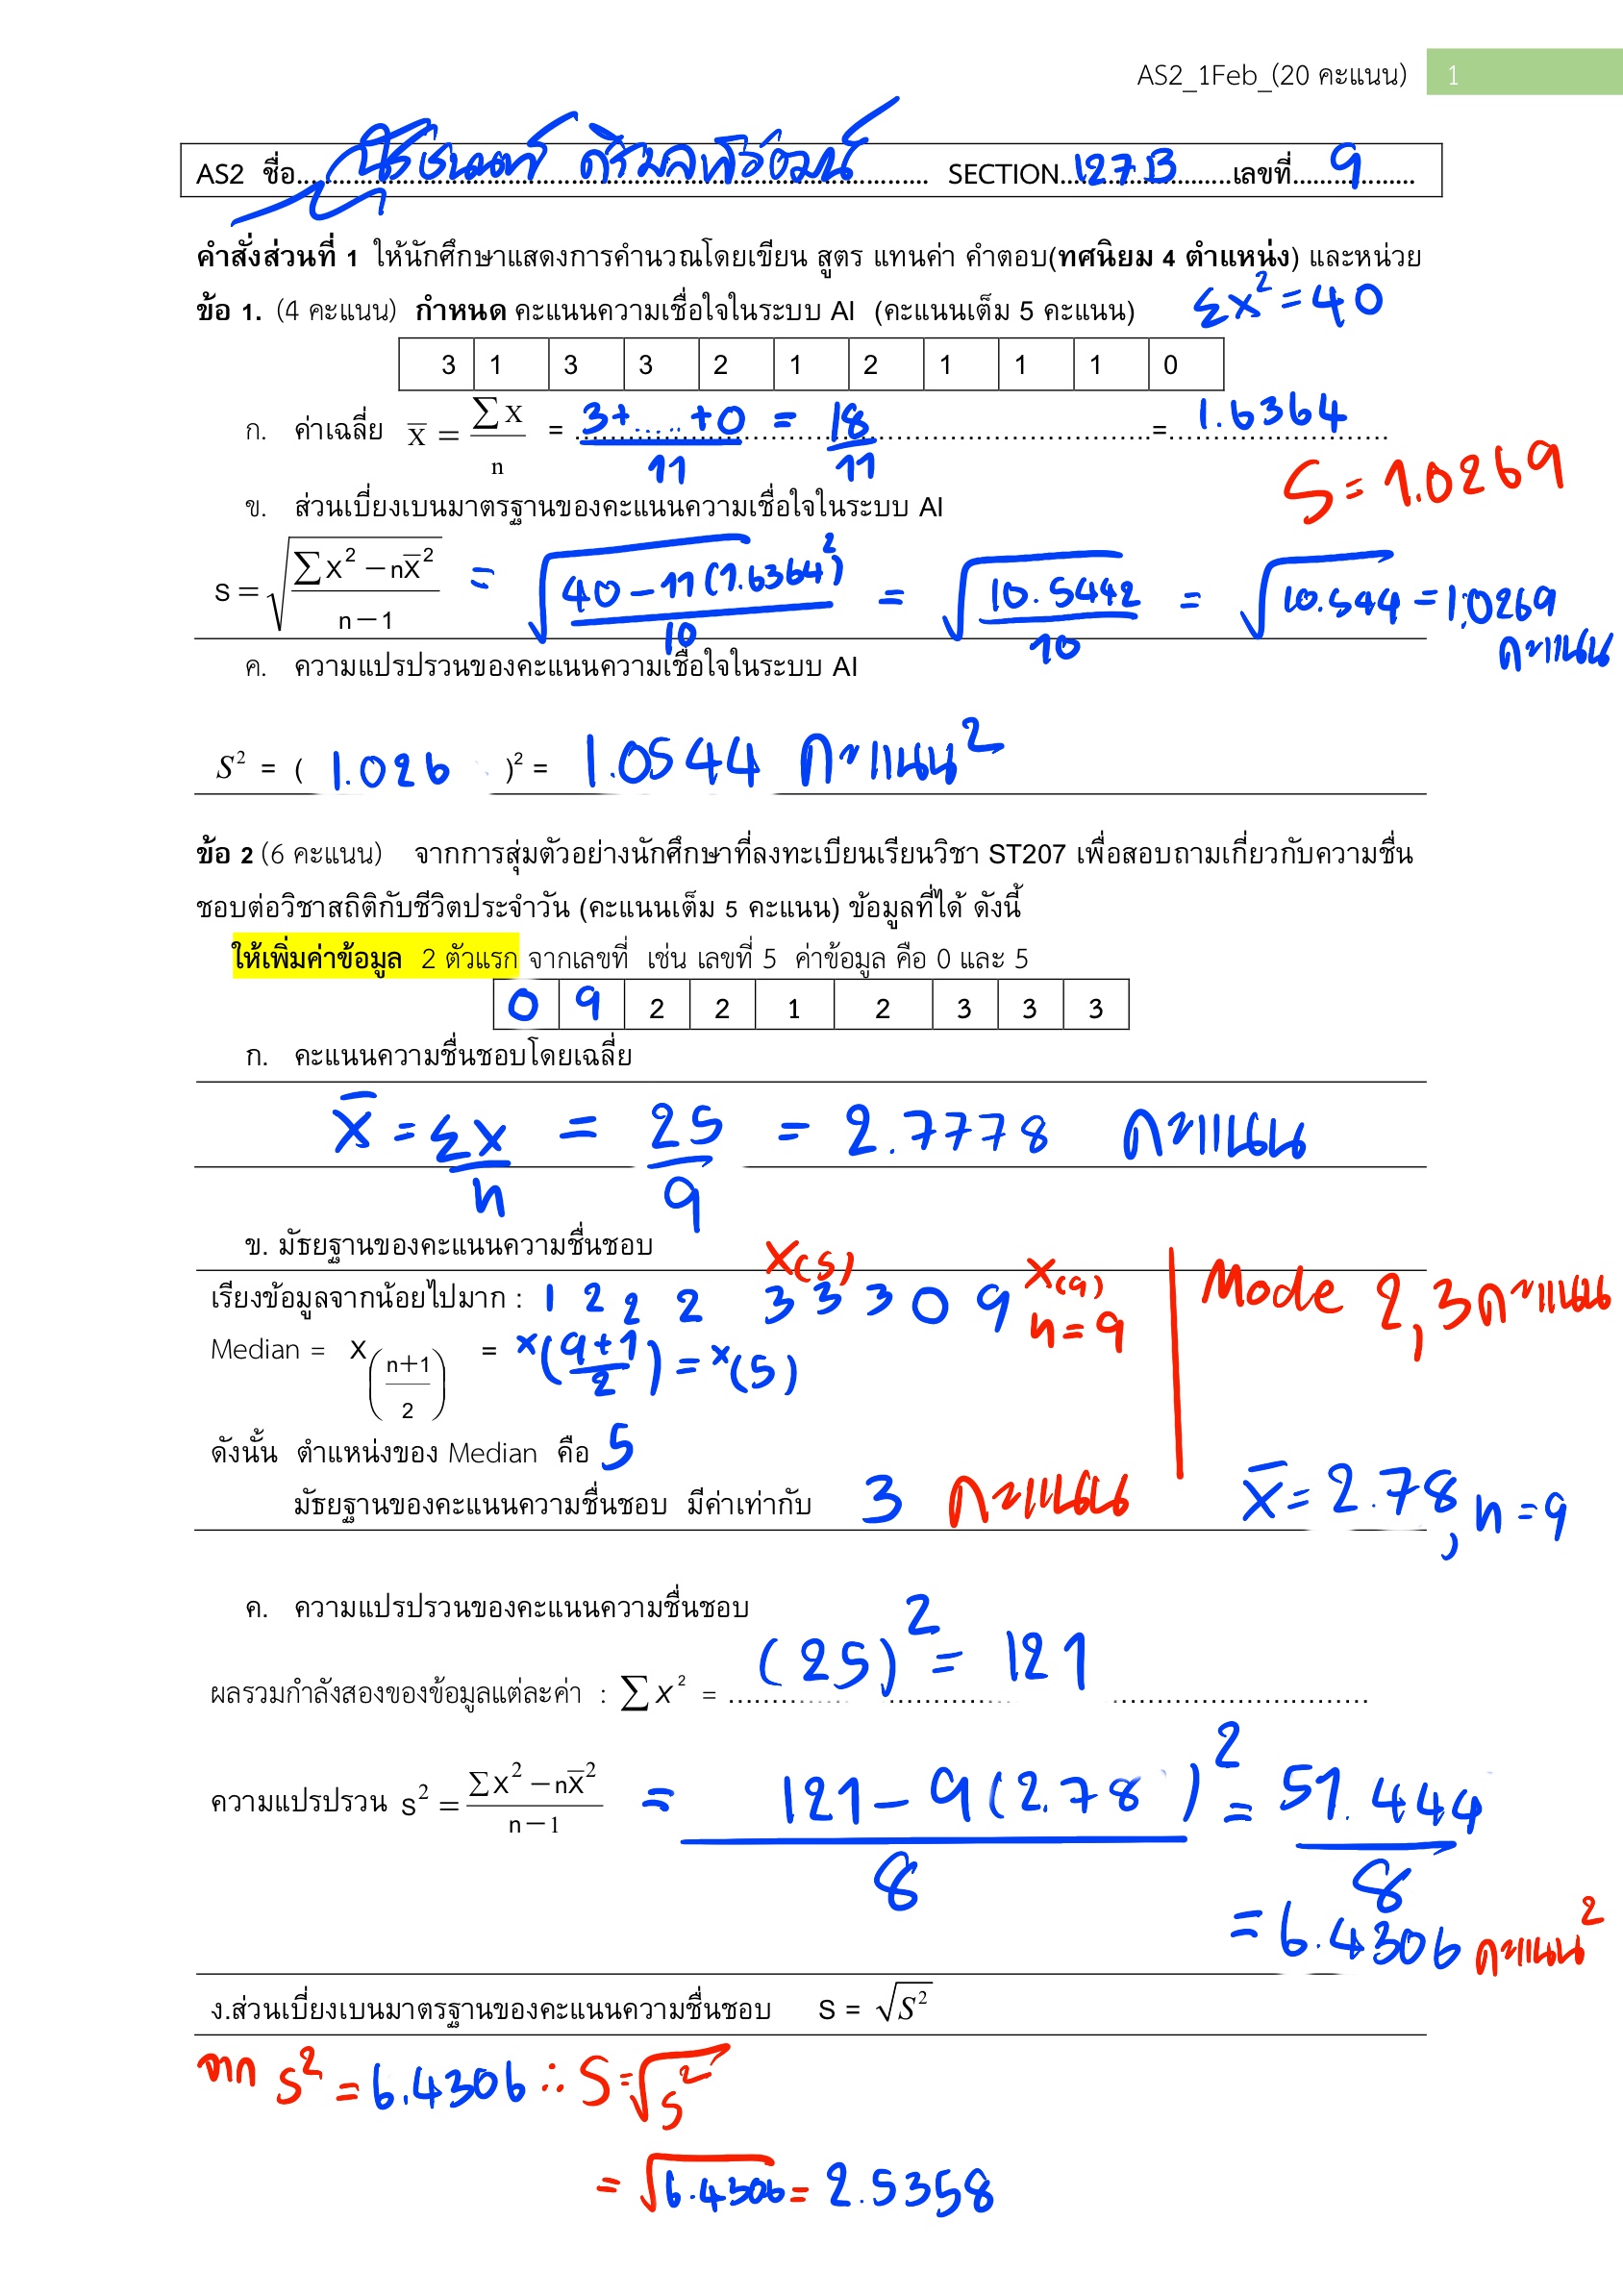 AS2_1Feb_(20 คะแนน) 1
AS2 ชื่อ SECTION 127B เลขที่ 9
คำสั่งส่วนที่ 1 ให้นักศึกษาแสดงการคำนวณโดยเขียน สูตร แทนค่า คำตอบ(ทศนิยม 4 ตำแหน่ง) และหน่วย
ข้อ 1. (4 คะแนน) กำหนด คะแนนความเชื่อใจในระบบ AI (คะแนนเต็ม 5 คะแนน) Σx² = 40
3 1 3 3 2 1 2 1 1 1 0
ก. ค่าเฉลี่ย x̄ = ∑x / n = 3+.....+0 / 11 = 18 / 11 = 1.6364
S = 1.0269
ข. ส่วนเบี่ยงเบนมาตรฐานของคะแนนความเชื่อใจในระบบ AI
s = √(∑x² − nx̄² / n−1) = √(40 − 11(1.6364)² / 10) = √(10.5442 / 10) = √10.544 = 1.0269 คะแนน
ค. ความแปรปรวนของคะแนนความเชื่อใจในระบบ AI
S² = ( 1.026 )² = 1.0544 คะแนน²
ข้อ 2 (6 คะแนน) จากการสุ่มตัวอย่างนักศึกษาที่ลงทะเบียนเรียนวิชา ST207 เพื่อสอบถามเกี่ยวกับความชื่น
ชอบต่อวิชาสถิติกับชีวิตประจำวัน (คะแนนเต็ม 5 คะแนน) ข้อมูลที่ได้ ดังนี้
ให้เพิ่มค่าข้อมูล 2 ตัวแรก จากเลขที่ เช่น เลขที่ 5 ค่าข้อมูล คือ 0 และ 5
0 9 2 2 1 2 3 3 3
ก. คะแนนความชื่นชอบโดยเฉลี่ย
x̄ = Σx / n = 25 / 9 = 2.7778 คะแนน
ข. มัธยฐานของคะแนนความชื่นชอบ x(5)
เรียงข้อมูลจากน้อยไปมาก : 1 2 2 2 3 3 3 0 9 x(9) n=9 Mode 2,3 คะแนน
Median = x(n+1 / 2) = x(9+1 / 2) = x(5)
ดังนั้น ตำแหน่งของ Median คือ 5
มัธยฐานของคะแนนความชื่นชอบ มีค่าเท่ากับ 3 คะแนน x̄ = 2.78, n = 9
ค. ความแปรปรวนของคะแนนความชื่นชอบ
ผลรวมกำลังสองของข้อมูลแต่ละค่า : ∑x² = (25)² = 121
ความแปรปรวน s² = ∑x² − nx̄² / n−1 = 121 − 9(2.78)² / 8 = 51.444 / 8
= 6.4306 คะแนน²
ง.ส่วนเบี่ยงเบนมาตรฐานของคะแนนความชื่นชอบ S = √S²
จาก s² = 6.4306 ∴ S = √s²
= √6.4306 = 2.5358